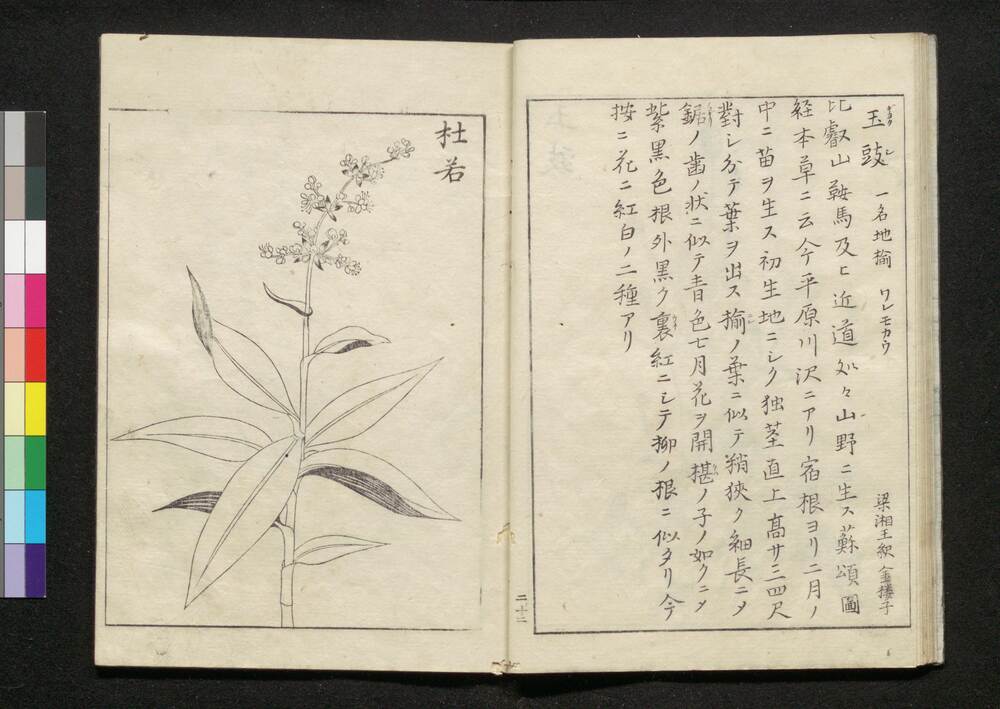 玉豉 一名地揄 ワレモカウ 梁湘王繹金楼子
ギヨク シ
比叡山鞍馬及ヒ近道処々山野ニ生ス蘇頌圖
経本草ニ云今平原川沢ニアリ宿根ヨリ二月ノ
中ニ苗ヲ生ス初生地ニシク独茎直上高サ三四尺
對シ分テ葉ヲ出ス揄ノ葉ニ似テ稍狹ク細長ニメ
鋸ノ歯ノ状ニ似テ青色七月花ヲ開椹ノ子ノ如クニメ
紫黒色根外黒ク裏紅ニシテ柳ノ根ニ似タリ今
按ニ花ニ紅白ノ二種アリ
二十三
杜若